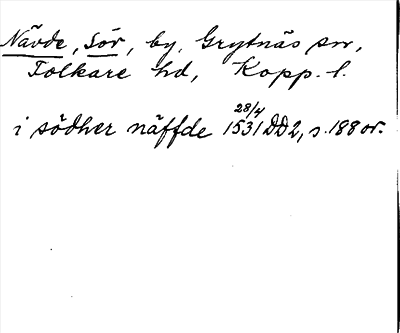 Nävde, Sör, by, Grytnäs sn,
Folkare hd, Kopp. l.
i södher näffde 28/4 1531 DD2, s. 188 or.